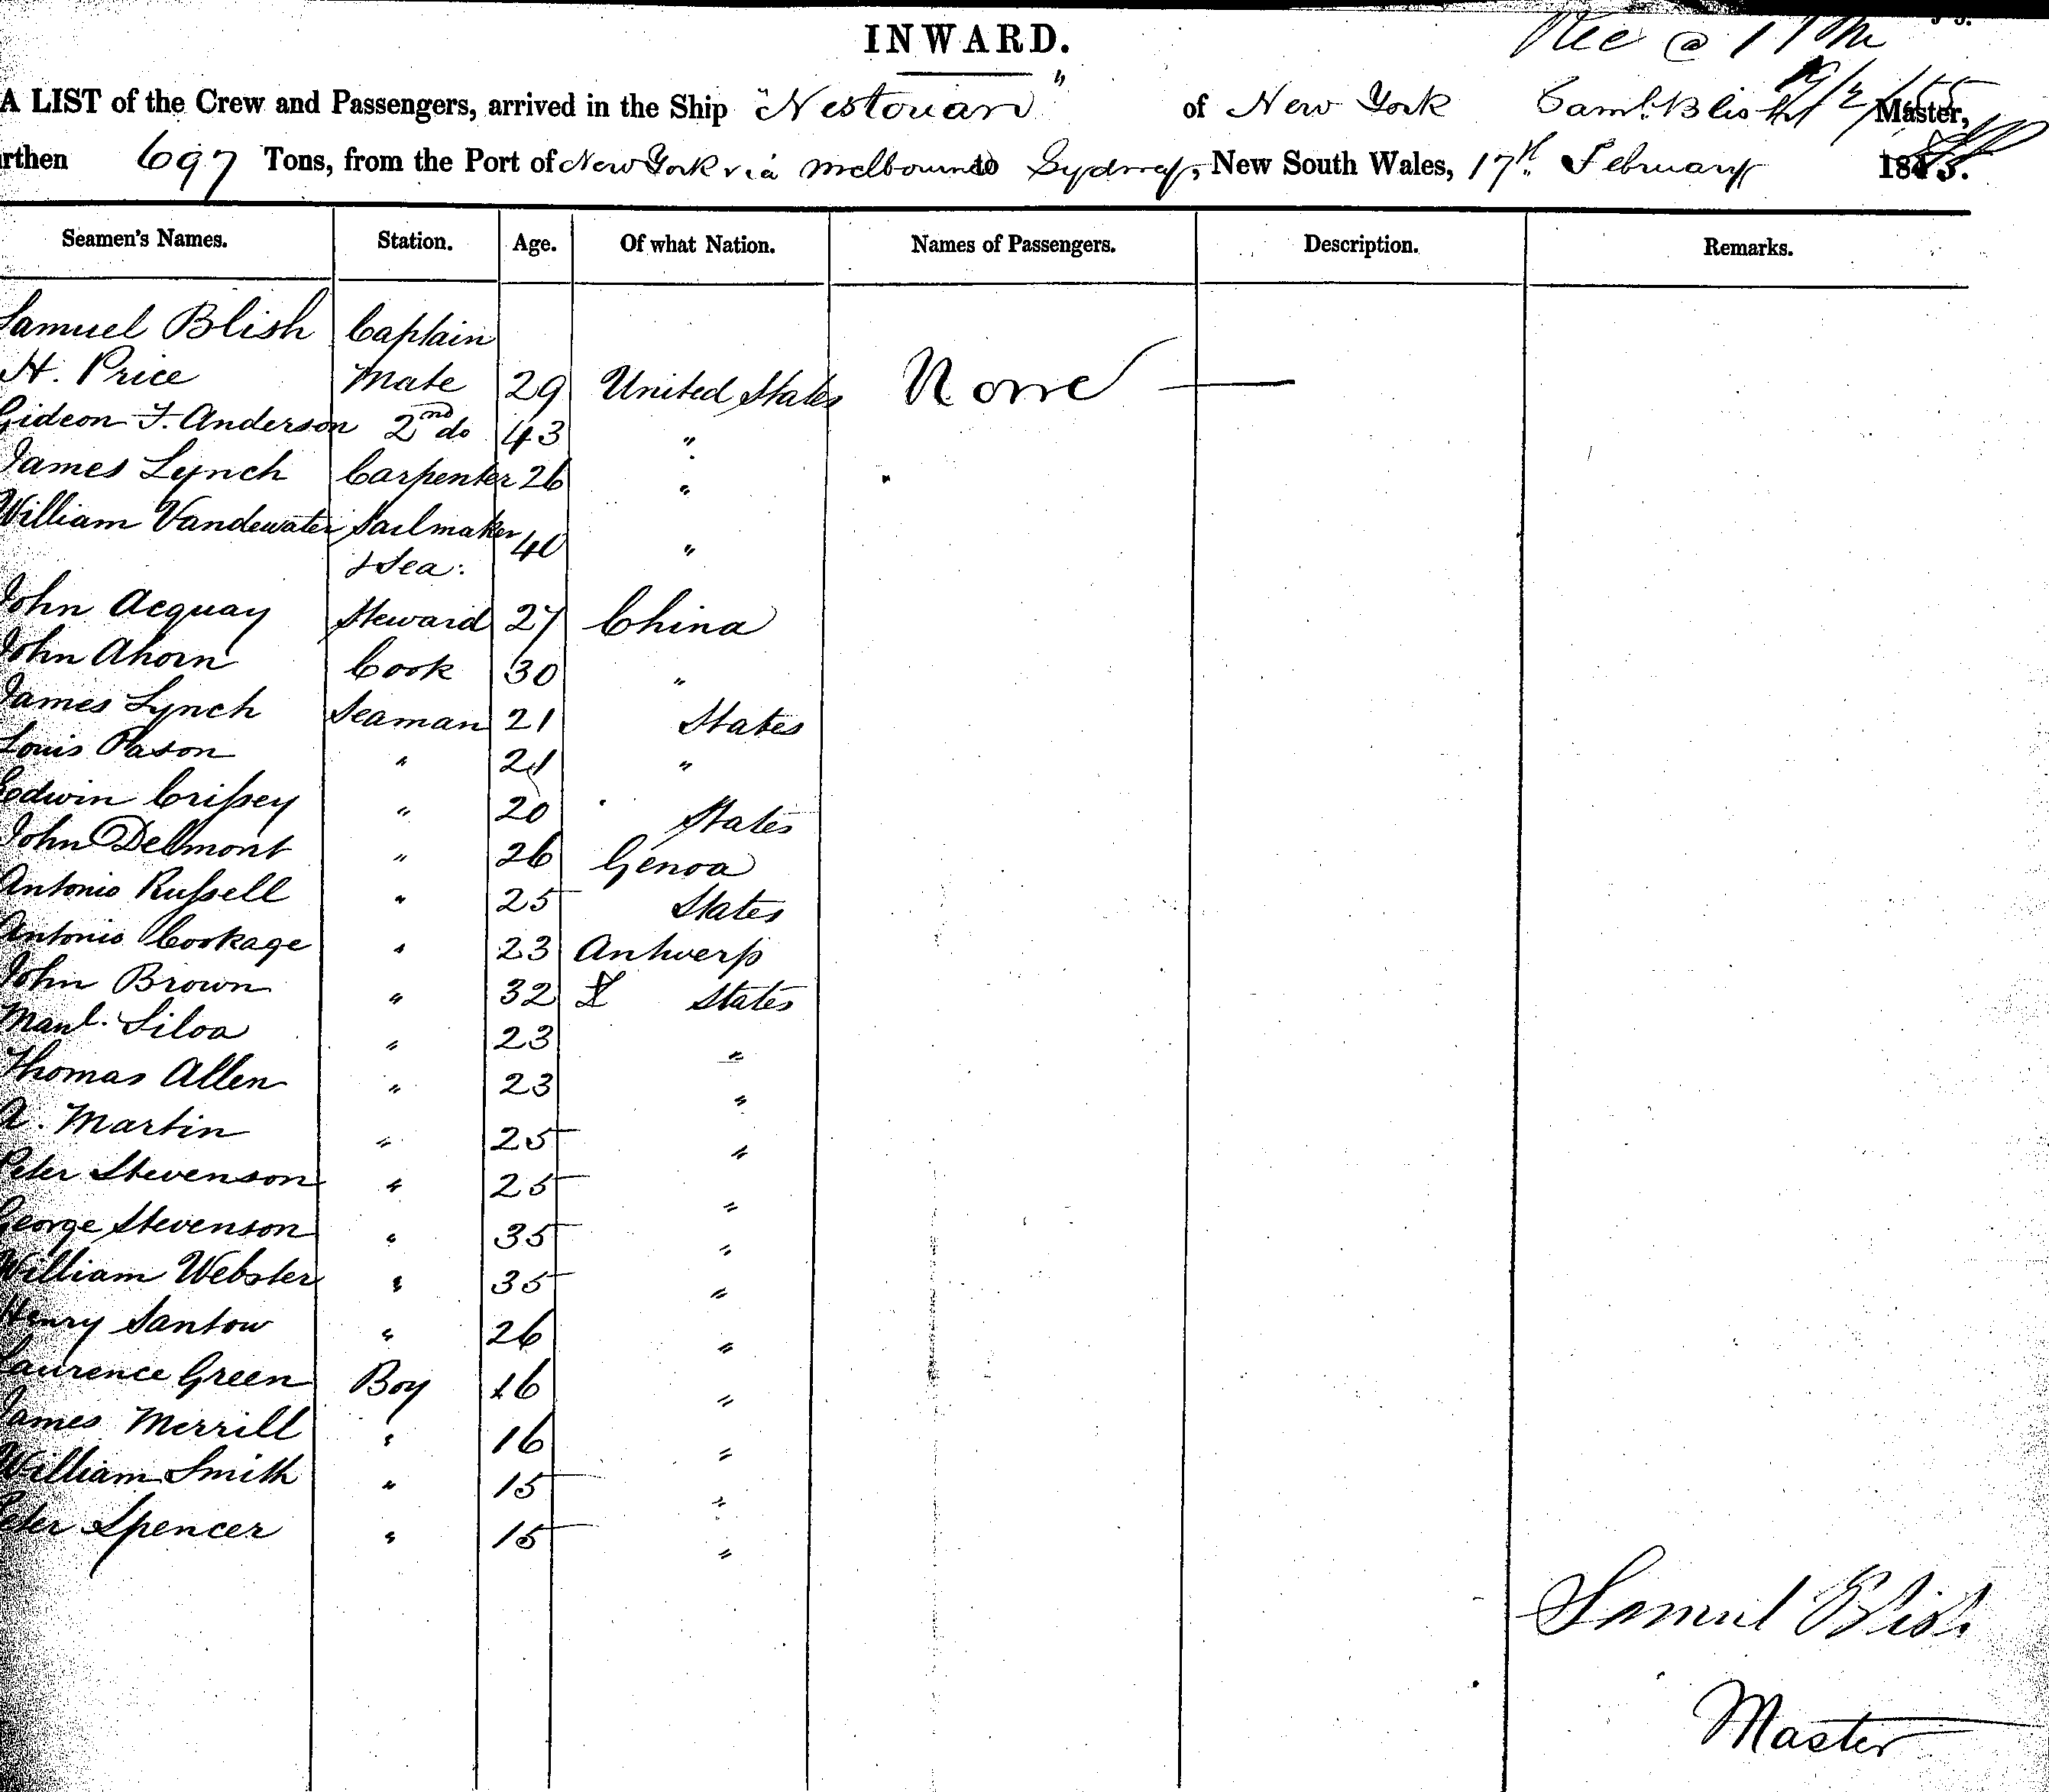 INWARD.
Rec @ 1 PM
19/2/55
A LIST of the Crew and Passengers, arrived in the Ship "Nestorian" of New York Saml. Blish Master,
rthen 697 Tons, from the Port of New York via Melbourne to Sydney, New South Wales, 17th February 1855.
Seamen's Names. Station. Age. Of what Nation. Names of Passengers. Description. Remarks.
Samuel Blish Captain
H. Price Mate 29 United States None —
Gideon F. Anderson 2nd do 43 "
James Lynch Carpenter 26 "
William Vandewater Sailmaker 40 "
& Sea:
John Acquay Steward 27 China
John Ahorn Cook 30 "
James Lynch Seaman 21 States
Louis Pason " 21 "
Edwin Crissey " 20 States
John Delmont " 26 Genoa
Antonio Russell " 25 States
Antonio Cookage " 23 Antwerp
John Brown " 32 States
Manl. Siloa " 23 "
Thomas Allen " 23 "
A. Martin " 25 "
Peter Stevenson " 25 "
George Stevenson " 35 "
William Webster " 35 "
Henry Santow " 26 "
Laurence Green Boy 16 "
James Merrill " 16 "
William Smith " 15 "
Peter Spencer " 15 "
Samuel Blish
Master